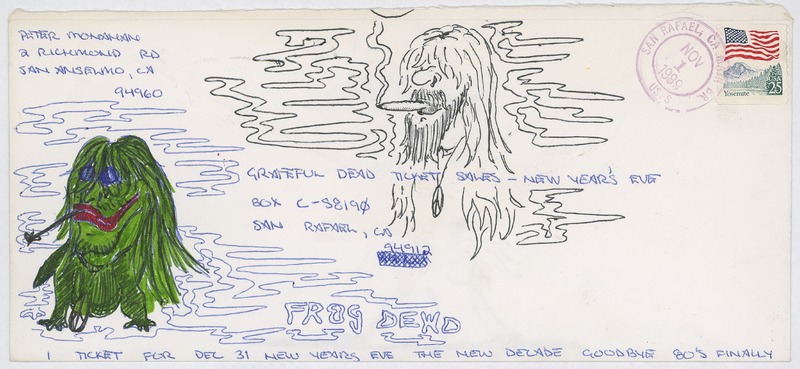 PETER MONAHAN
2 RICHMOND RD
SAN ANSELMO, CA
94960
SAN RAFAEL, CA
NOV
1
1989
USPS
25
Yosemite
GRATEFUL DEAD TICKET SALES - NEW YEAR'S EVE
BOX C-S8190
SAN RAFAEL, CA
94912
FROG DEWD
1 TICKET FOR DEC 31 NEW YEARS EVE THE NEW DECADE GOODBYE 80'S FINALLY